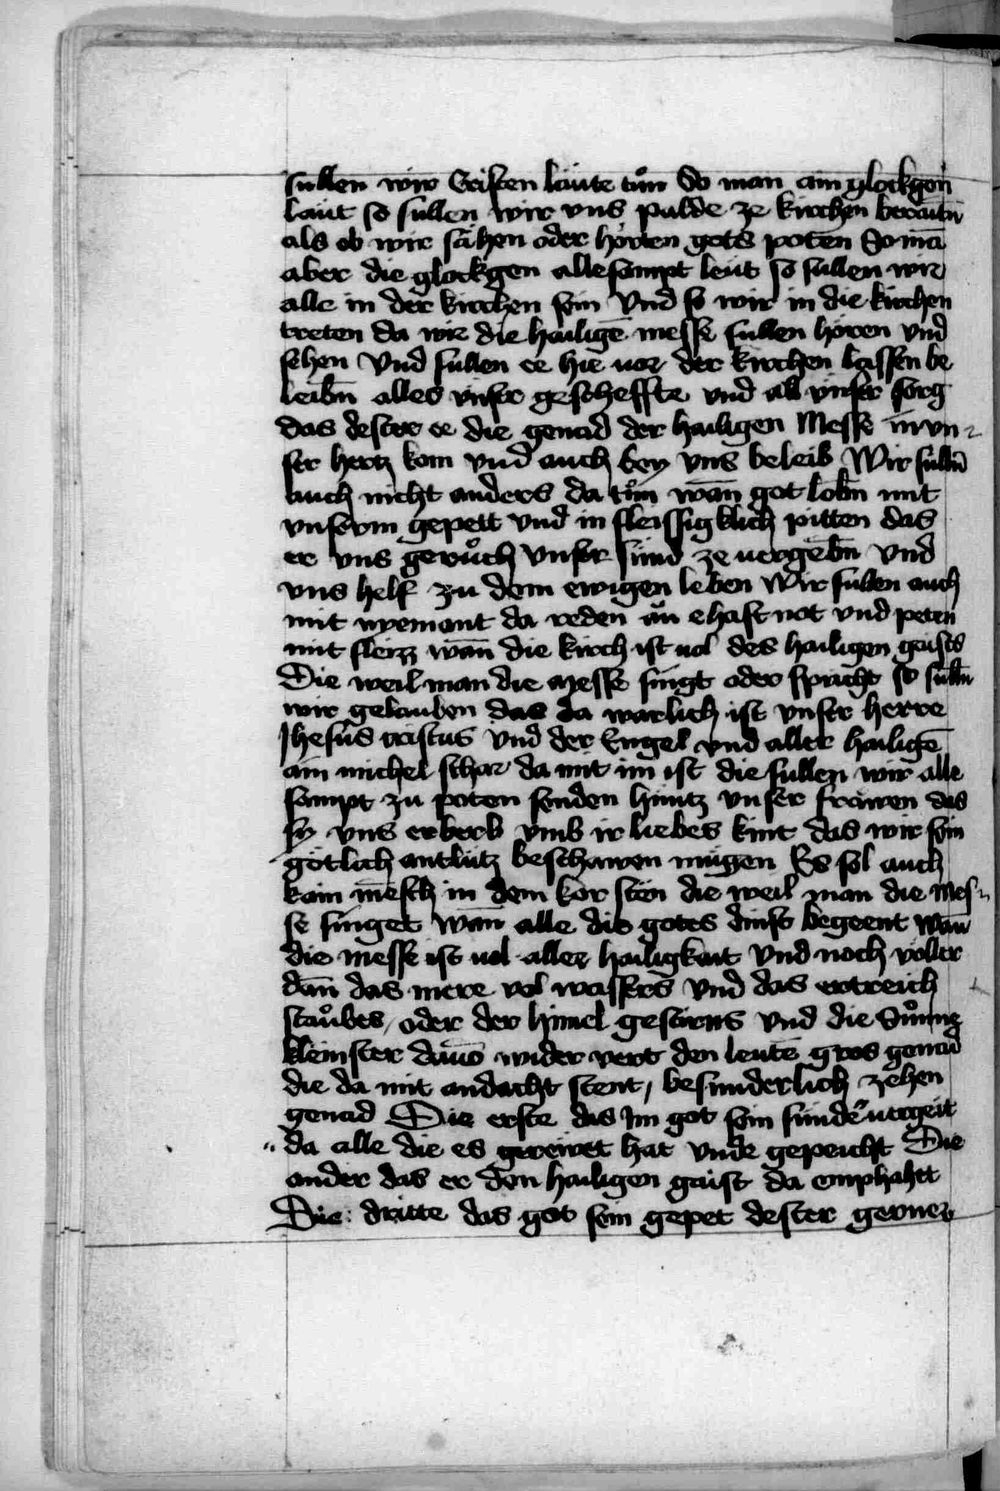 sullen wir Cristen läute tůn So man ain glockgen
laüt so sullen wir vns palde ze kirchen beraitn̄
als ob wir sähen oder hörten gots poten So mā
aber die glockgen alle sampt leüt so sullen wir
alle in der kirchen sein Vnd so wir in die kirchen
treten da wir die hailigē messe sullen hören vnd
sehen Vnd sullen ee hie uor der kirchen lassen be
leibn̄ alles vnser gescheffte vnd all vnser sorg
das dester ee die genad der hailigen Messe in vn
ser hertz kom vnd auch bey vns beleib Wir sulln̄
auch nicht anders da tůn wan̄ got lobn̄ mit
vnserm gepett vnd in fleissigklich pitten das
er vns gerůch vnser sünd ze uergebn̄ vnd
vns helf zu dem ewigen leben Wir sullen auch
mit nyemant da reden ån ehaft not vnd peten
mit fleizz wan̄ die kirch ist uol des hailigen gaists
Die weil man die messe singt oder spricht so sulln̄
wir gelauben das da warlich ist vnser herre
Jhesus cristus Vnd der Engel vnd aller hailigē
ain michel schar da mit im ist die sullen wir alle
sampt zu poten senden hintz vnser frawen das
sy vns erberb vmb ir liebes kint das wir sein
götlich antlütz beschawen mügen Es sol auch
kain mēsch in dem kor sten die weil man die mes
se singet wan̄ alle die gotes dinst begeent wan̄
die messe ist uol aller hailigkait Vnd noch voller
dan̄ das mere vol wassers Vnd das ertreich
staůbes, oder der himel gestirns vnd die Sůnne
kleinster dauō wider vert den leutē gros genad
die da mit andacht stent, besunderlich zehen
genad Die erste das Im got sein sünde uergeit
da alle die es gereiwet hat vnde gepeicht Die
ander das er den hailigen gaist da emphahet
Die dritte das got sein gepet dester gerner